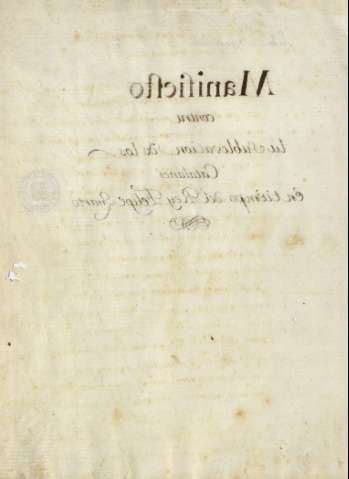 Manifiesto
contra
la Sublevacion de los
Catalanes
En tiempo del Rey Felipe Quarto